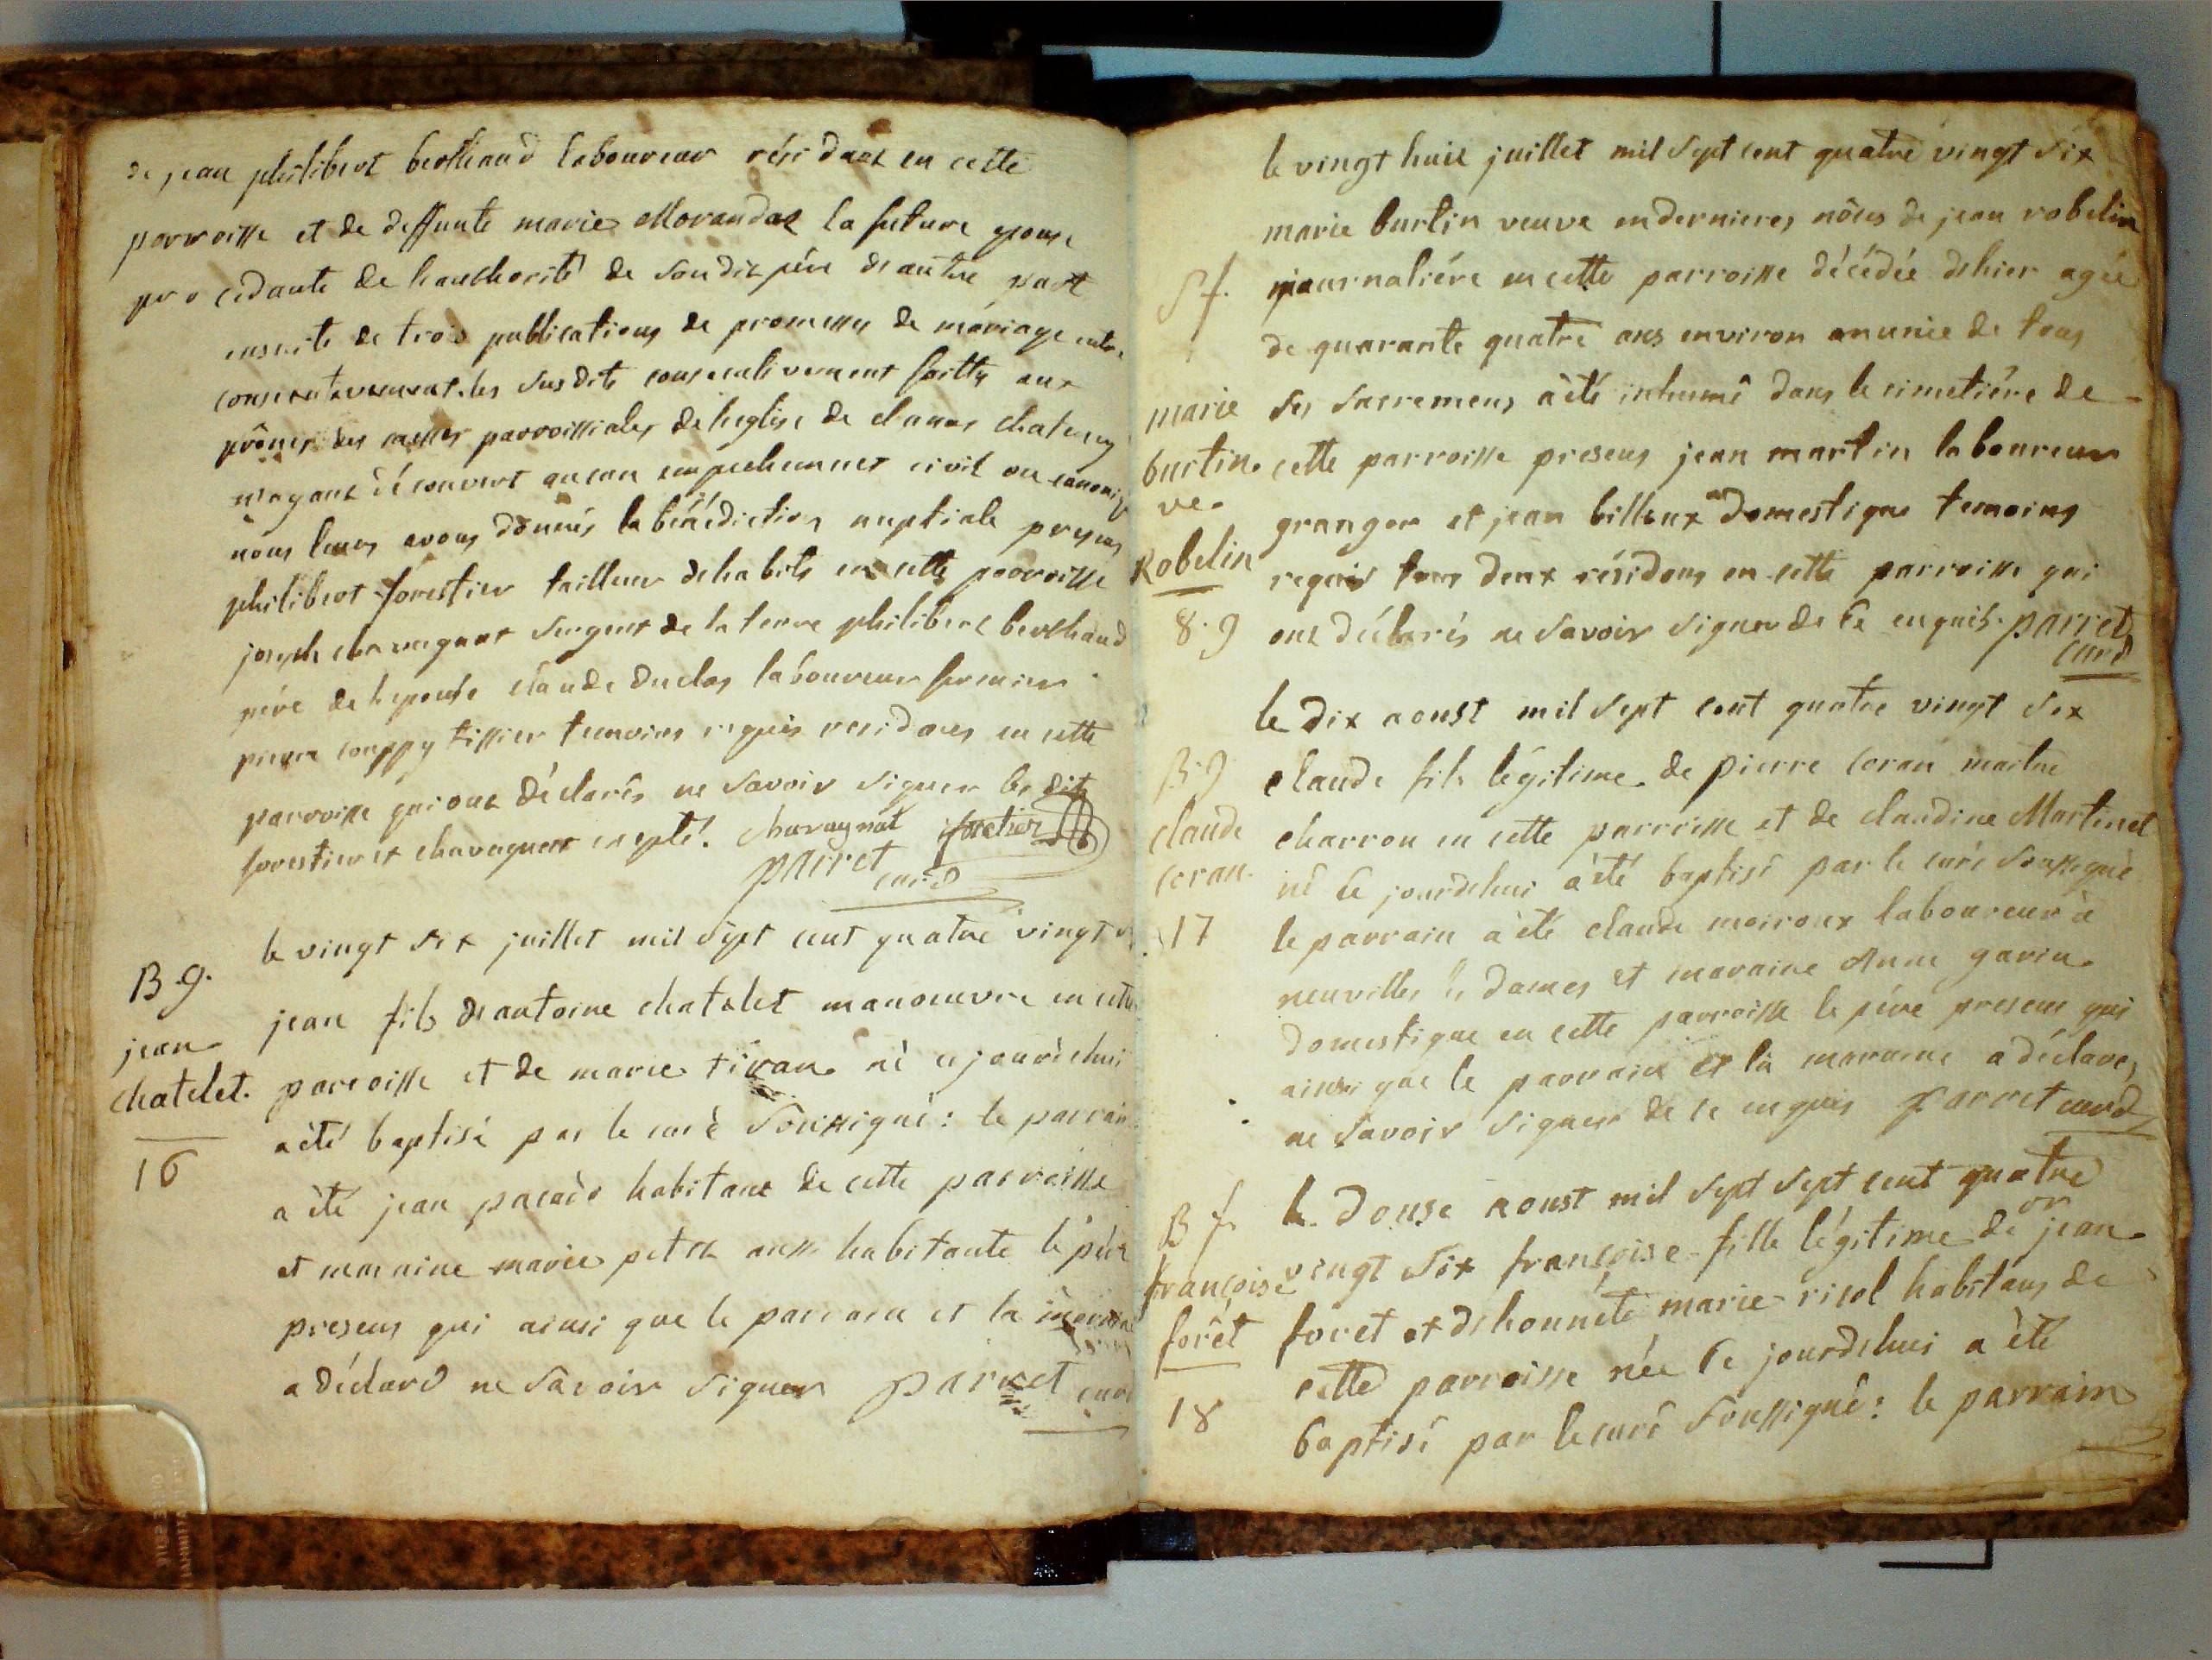 de jean philibert berthaud laboureur résidant en cette
parroisse et de deffunte marie Morandat la future epouse
procedante de l'authorité de son dit pére d'autre part
ensuite de trois publications de promesses de mariage entre
les susdits consecutivement faittes aux
prônes des messes parroissiales de l'eglise de
n'ayant découvert aucun empechement civil ou canoniq
nous leurs avons donnés la bénédiction nuptiale presens
philibert forestier tailleur d'habits en cette parroisse
joseph chavagnat sergent de la terre philibert berthaud
pére de l'epouse claude duclos laboureur fermier
pierre couppy tissier temoins requis residans en cette
parroisse qui ont déclarés ne savoir signer les dits
forestier et chavagnat excepté. chavagnat forestier
parret curé
le vingt six juillet mil sept cent quatre vingt
B. g. jean fils d'antoine chatelet manoeuvre en cette
jean chatelet. parroisse et de marie tiran né ce jourd'hui
a été baptisé par le curé Soussigné: le parrain
16 a été jean habitant de cette parroisse
et marraine marie petit aussi habitante le pére
presens qui ainsi que le parrain et la marraine
a déclaré ne Savoir signer parret curé
le vingt huit juillet mil sept cent quatre vingt six
marie burtin veuve en dernieres nôces de jean robelin
S f. journaliére en cette parroisse décédée d'hier agée
de quarante quatre ans environ munie de tous
marie ses sacremens a été inhumé dans le cimetiére de
burtin. cette parroisse presens jean martin laboureur
ve. granger et jean billoux domestique temoins
Robelin requis tous deux résidens en cette parroisse qui
8. g ont déclarés ne savoir signer de ce enquis. parret
curé
le dix aoust mil sept cent quatre vingt six
B. g claude fils légitime de pierre coran maitre
claude charron en cette parroisse et de claudine Martinet
coran. né ce jourd'hui a été baptisé par le curé soussigné
17 le parrain a été claude moiroux laboureur à
neuville les dames et maraine Anne gavin
domestique en cette parroisse le pére present qui
ainsi que le parrain et la maraine a déclare,
ne savoir signer de ce enquis parret curé
B f. le douse aoust mil sept sept cent quatre
françoise vingt six françoise fille légitime de jean
forêt foret et d'honnéte marie risol habitans de
cette parroisse née ce jourd'hui a été
18 baptisé par le curé soussigné: le parrain